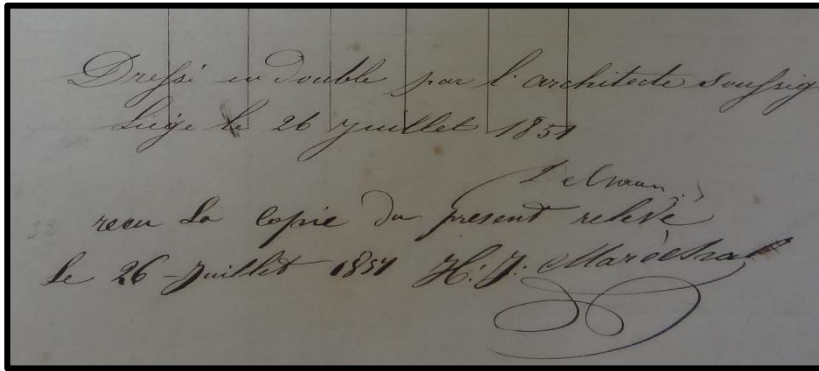 Dressé en double par l'architecte soussig
Liège le 26 juillet 1851
recu la copie du présent relevé
le 26 Juillet 1851 H: J: Maréchal